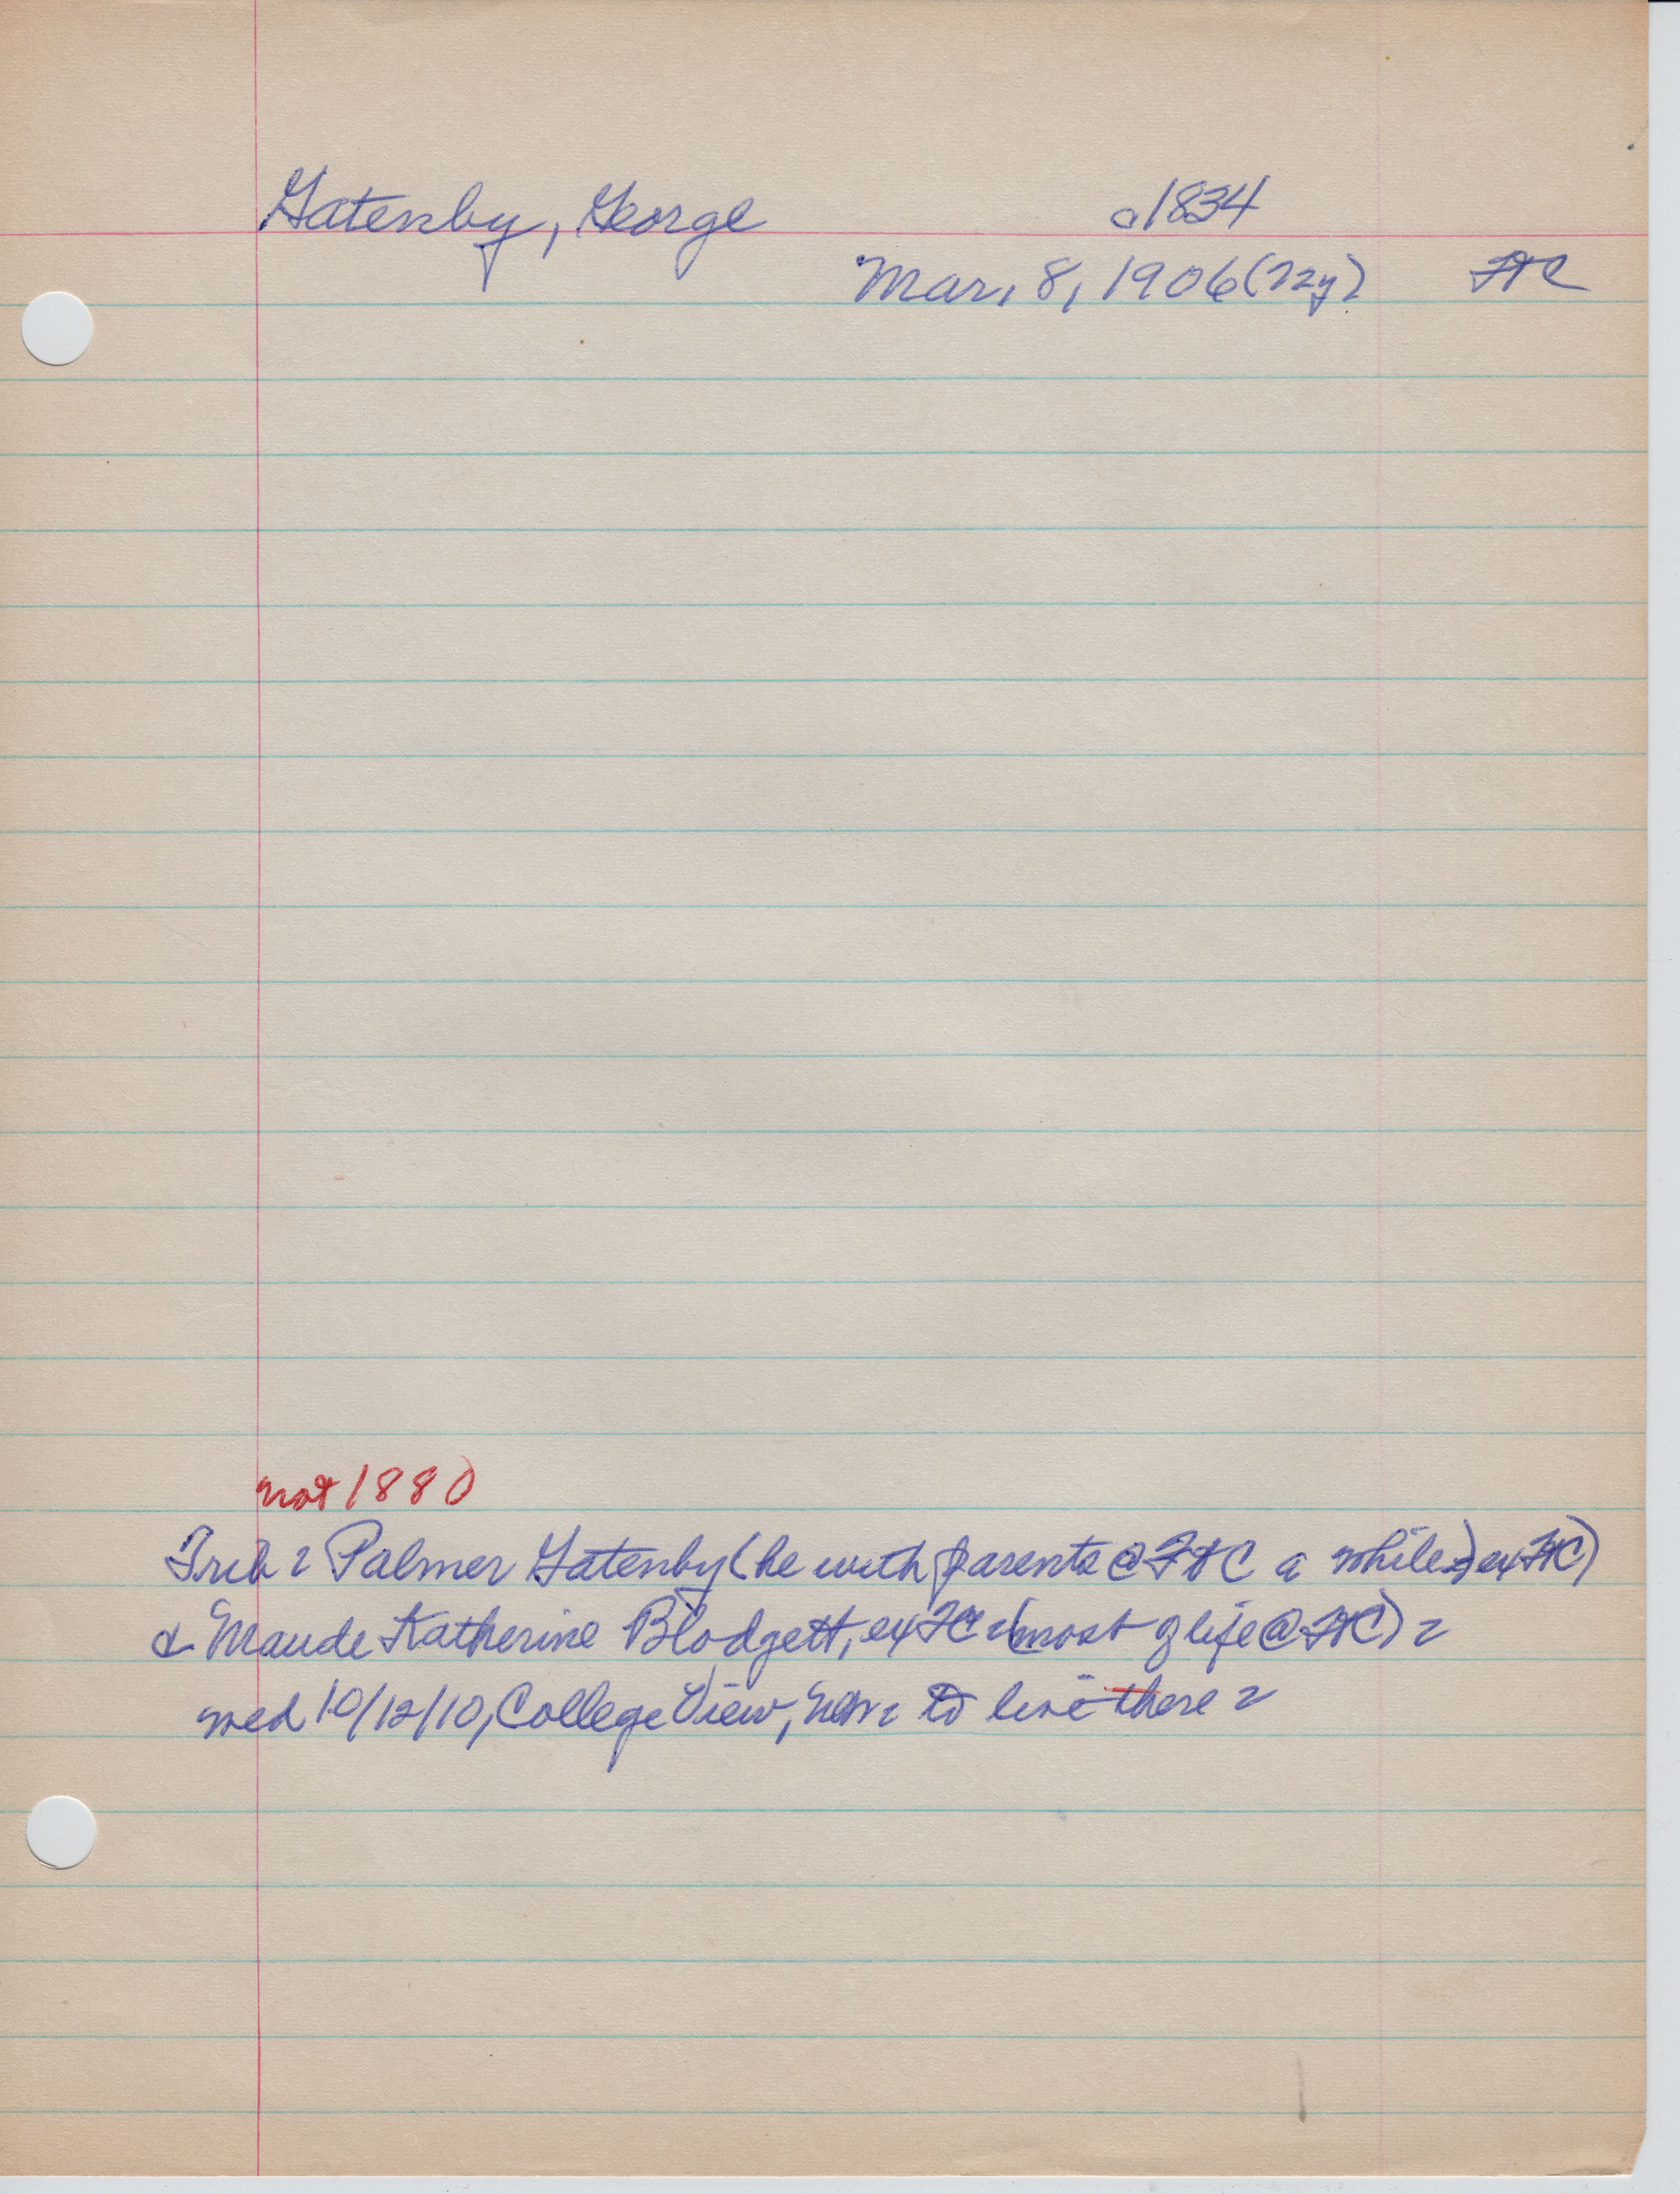 Gatenby, George c1834
Mar, 8, 1906 (72y) FtC
not 1880
Trib: Palmer Gatenby (he with parents @ FtC a while) ex FtC)
& Maude Katherine Blodgett, ex FtC (most of life @ FtC)
med 10/12/10, College View, Nebr: to live there